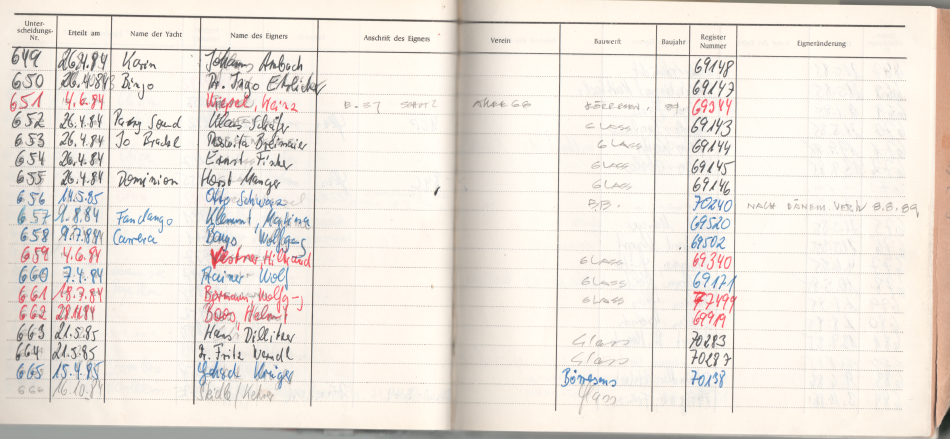 Unter- scheidungs- Nr. Erteilt am Name der Yacht Name des Eigners Anschrift des Eigners Verein Bauwerft Baujahr Register Nummer Eigneränderung
649 26.4.84 Karin Johann Ambach 69148
650 26.4.84 Bingo Dr. Ingo 69147
651 4.6.84 Heinz 69344
652 26.4.84 Klaus Schäfer GLASS 69143
653 26.4.84 Jo GLASS 69144
654 26.4.84 Ernst Fischer GLASS 69145
655 26.4.84 Dominion Horst Manger GLASS 69146
656 14.5.85 Otto Schwarz B.B. 70240 NACH DÄNEM. VERK 8.8.89
657 1.8.84 Fandango Klemmt, 69520
658 9.7.84 Carrera Wolfgang 69502
659 4.6.84 GLASS 69340
660 7.4.84 Rainer Wolf GLASS 69171
661 18.7.84 GLASS 77499
662 28.11.84 Helmut 69919
663 21.5.85 Hans Dillitzer Glass 70283
664 21.5.85 Dr. Fritz Glass 70287
665 15.4.85 Krüger Börresens 70138
666 16.10.84 Seidle/Kehrer Glass